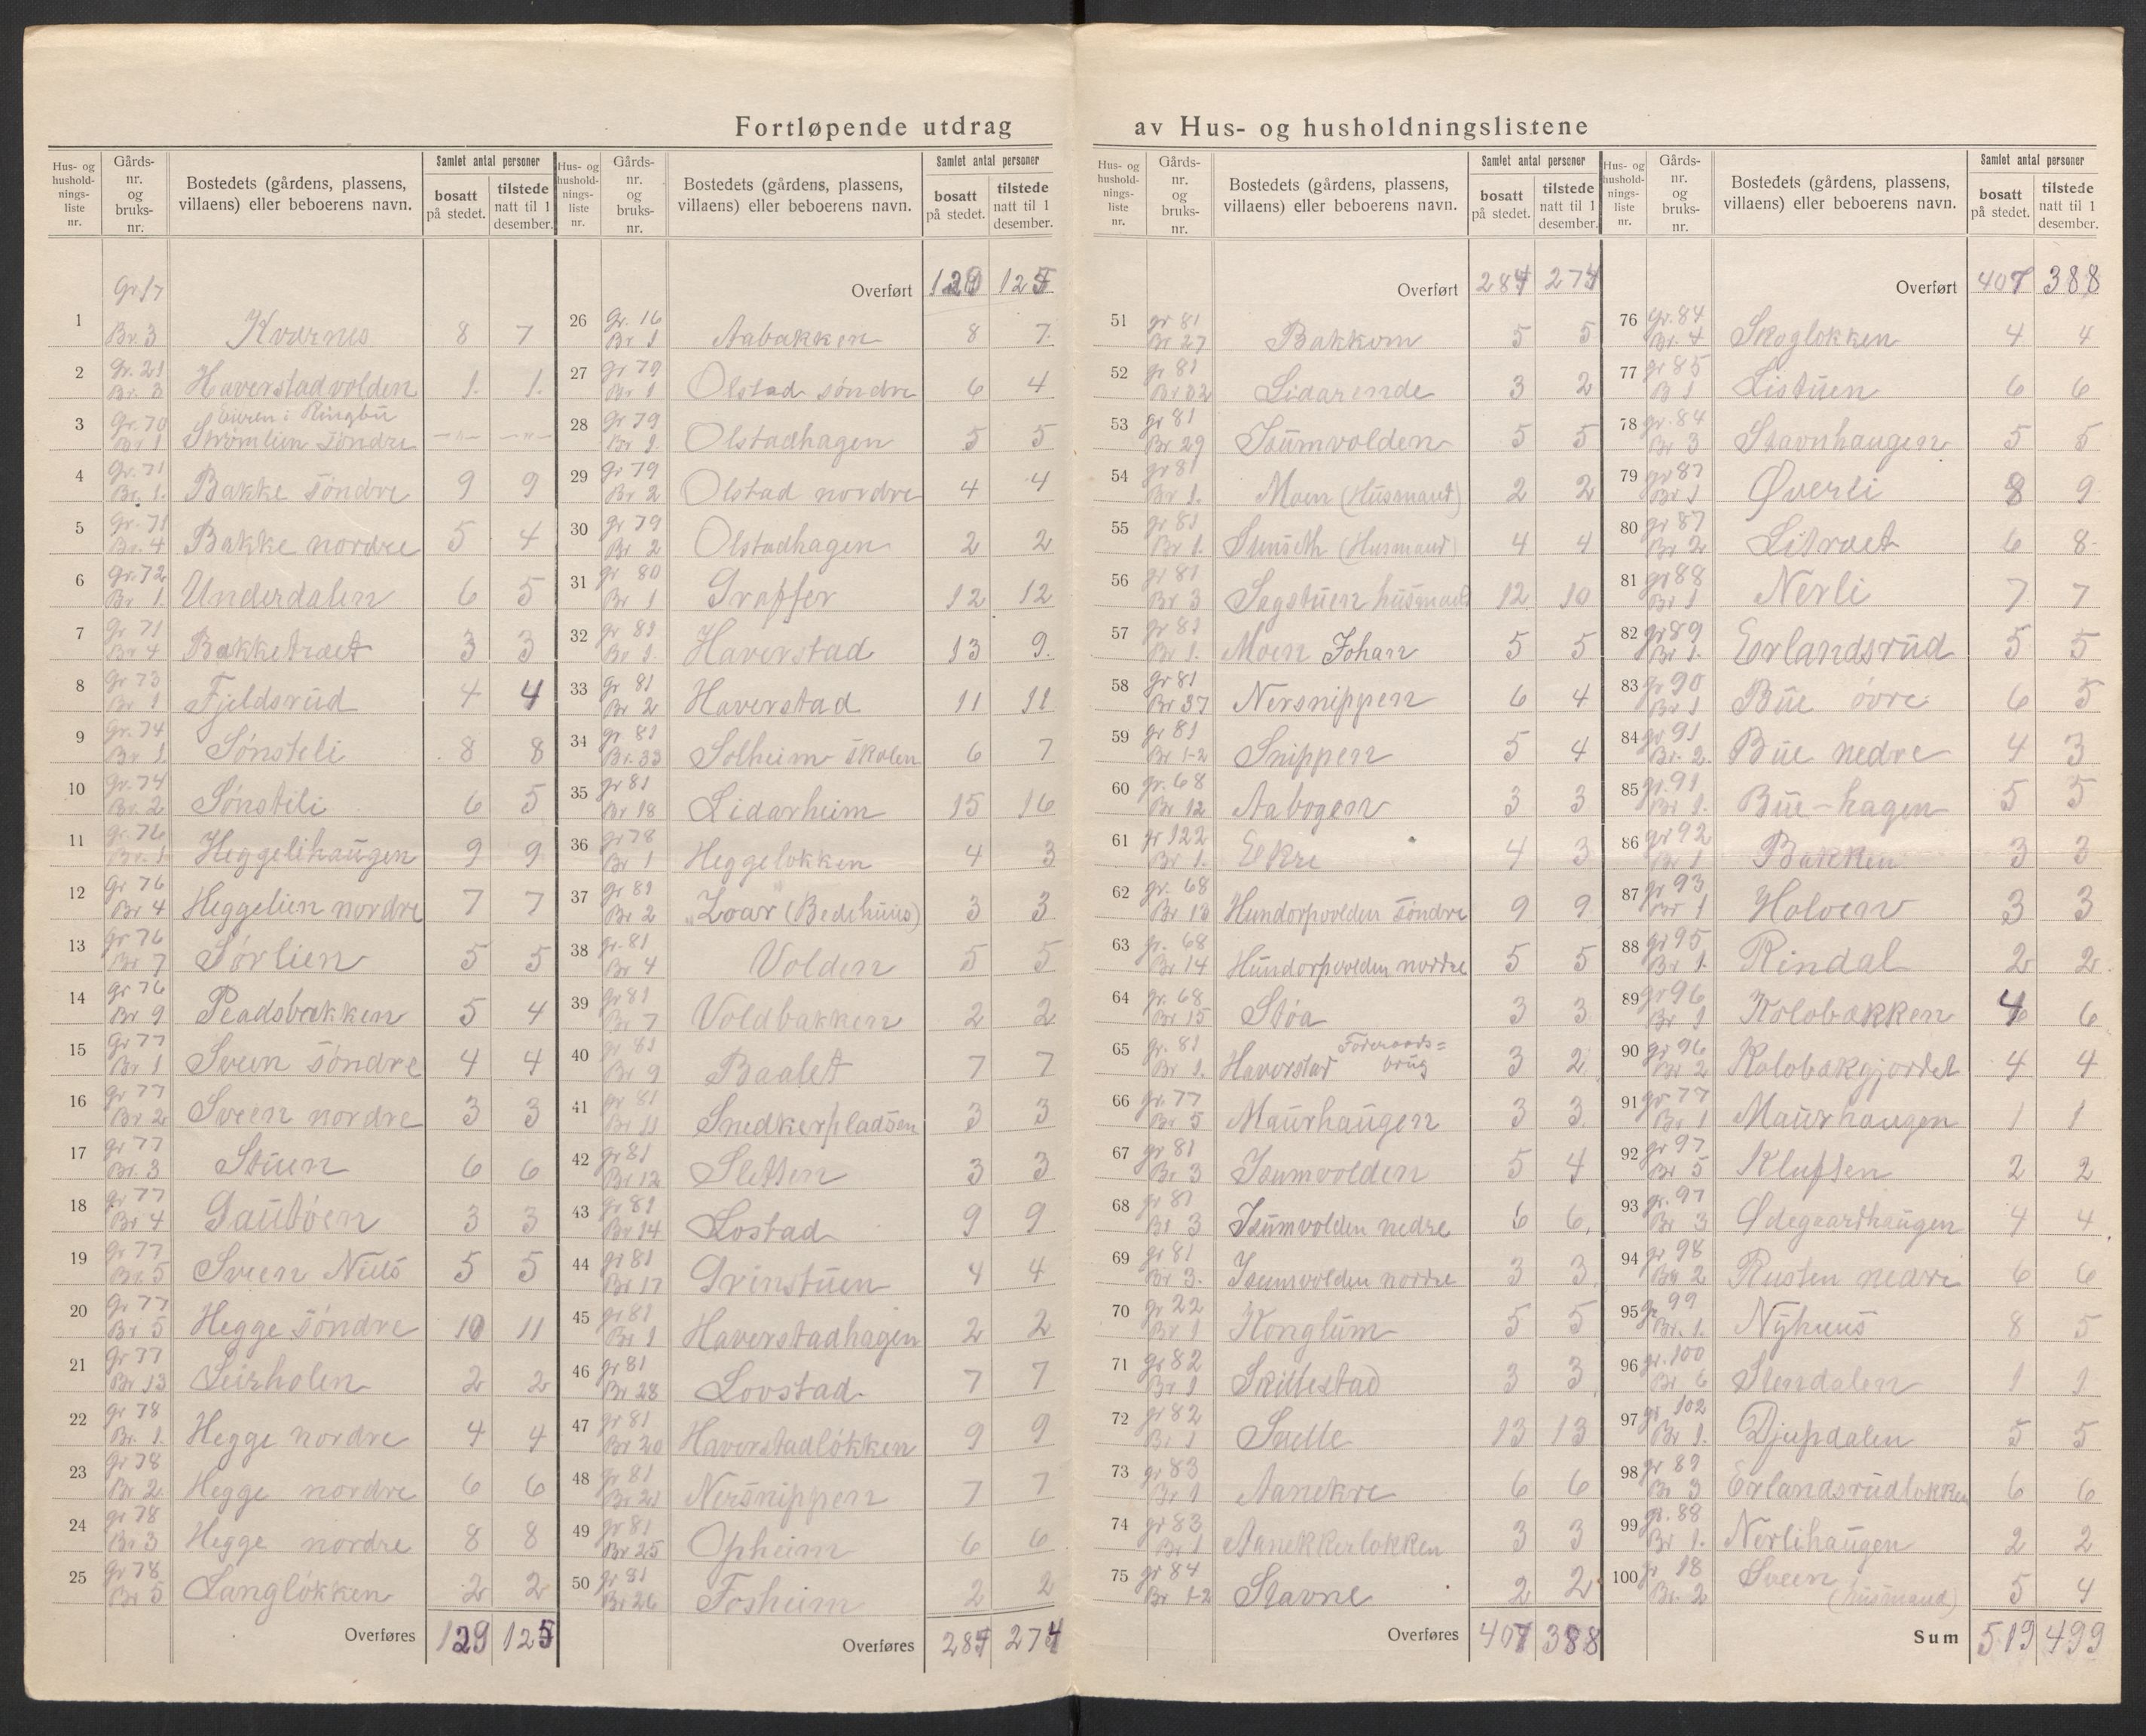 Fortløpende utdrag av Hus- og husholdningslistene
Hus- og husholdningsliste nr. | Gårds-nr. og bruks-nr. | Bostedets (gårdens, plassens, villaens) eller beboerens navn. | Samlet antal personer bosatt på stedet. | tilstede natt til 1 desember.
1 Gr 17 Br. 3 Kvarnes 8 7
2 Gr. 21 Br. 3 Haverstadvolden 1. 1.
3 Gr. 70 Br 1 Eieren i Ringbu Strømlien søndre -"- -"-
4 Gr. 71 Br. 1. Bakke søndre 9 9
5 Gr. 71 Br. 4 Bakke nordre 5 4
6 Gr. 72 Br 1. Underdalen 6 5
7 Gr 71 Br 4 Bakketræet 3 3
8 Gr 73 Br 1 Fjeldsrud 4 4
9 Gr. 74 Br 1. Sønsteli 8 8
10 Gr. 74 Br. 2 Sønsteli 6 5
11 Gr. 76 Br. 1 Heggelihaugen 9 9
12 Gr 76 Br 4 Heggelien nordre 7 7
13 gr 76 Br 7 Sørlien 5 5
14 gr 76 Br 9 Pladsbakken 5 4
15 gr 77 Br 1 Sveen søndre 4 4
16 gr 77 Br 2 Sveen nordre 3 3
17 gr 77 Br. 3 Stuen 6 6
18 gr 77 Br 4 Gautøen 3 3
19 gr 77 Br. 5 Sveen Nils 5 5
20 gr 77 Br 5 Hegge søndre 10 11
21 gr 77 Br 13 Leirholen 2 2
22 gr 78 Br. 1. Hegge nordre 4 4
23 gr 78 Br 2 Hegge nordre 6 6
24 gr 78 Br 3 Hegge nordre 8 8
25 gr 78 Br 5 Langløkken 2 2
Overføres 129 125
Hus- og husholdningsliste nr. | Gårds-nr. og bruks-nr. | Bostedets (gårdens, plassens, villaens) eller beboerens navn. | Samlet antal personer bosatt på stedet. | tilstede natt til 1 desember.
Overført 129 125
26 Gr. 16 Br 1 Aabakken 8 7
27 gr 79 Br 1 Olstad søndre 6 4
28 gr 79 Br 1. Olstadhagen 5 5
29 gr 79 Br 2 Olstad nordre 4 4
30 gr 79 Br 2 Olstadhagen 2 2
31 gr 80 Br 1 Graffer 12 12
32 gr 81 Br 1. Haverstad 13 9.
33 gr 81 Br 2 Haverstad 11 11
34 gr 81 Br. 33 Solheim skolen 6 7
35 gr 81 Br 18 Lidarheim 15 16
36 gr 78 Br 1 Heggeløkken 4 3
37 gr 81 Br 2 "Zoar" (Bedehuus) 3 3
38 gr. 81 Br 4 Volden 5 5
39 gr 81 Br 7 Voldbakken 2 2
40 gr 81 Br 9 Baalet 7 7
41 gr 81 Br 11 Snedkerpladsen 3 3
42 gr 81 Br 12 Sletten 3 3
43 gr 81 Br 14 Lostad 9 9
44 gr 81 Br 17 Grinstuen 4 4
45 gr 81 Br 1 Haverstadhagen 2 2
46 gr 81 Br 28 Lovstad 7 7
47 gr 81 Br 20 Haverstadløkken 9 9
48 gr 81 Br 21 Nersnippen 7 7
49 gr 81 Br 25 Opheim 6 6
50 gr 81 Br 26 Fosheim 2 2
Overføres 287 274
Hus- og husholdningsliste nr. | Gårds-nr. og bruks-nr. | Bostedets (gårdens, plassens, villaens) eller beboerens navn. | Samlet antal personer bosatt på stedet. | tilstede natt til 1 desember.
Overført 287 274
51 gr 81 Br 27 Bakkom 5 5
52 gr 81 Br 32 Lidarende 3 2
53 gr 81 Br 29 Isumvolden 5 5
54 gr 81 Br 1. Moen (Husmand) 2 2
55 gr 81 Br 1. (Husmand) 4 4
56 gr 81 Br 3 Sagstuen husmand 12 10
57 gr 81 Br 1. Moen Johan 5 5
58 gr 81 Br 37 Nersnippen 6 4
59 gr 81 Br 1-2 Snippen 5 4
60 gr. 68 Br 12 Aabogen 3 3
61 gr 122 Br 1. Ekre 4 3
62 gr. 68 Br 13 Hundorpvolden søndre 9 9
63 gr. 68 Br 14 Hundorpvolden nordre 5 5
64 gr. 68 Br 15 Støa 3 3
65 gr. 81 Br 1. Haverstad Føderaads= brug 3 2
66 gr. 77 Br. 5 Maurhaugen 3 3
67 gr 81 Br 3 Isumvolden 5 4
68 gr 81 Br 3 Isumvolden nedre 6 6
69 gr 81 Br 3. Isumvolden nordre 3 3
70 gr 22 Br 1 Konglum 5 5
71 gr 82 Br 1 Skillestad 3 3
72 gr 82 Br 1 13 13
73 gr 83 Br 1 Aanekre 6 6
74 gr 83 Br 1 Aanekkerløkken 3 3
75 gr 84 Br 1-2 Stavne 2 2
Overføres 407 388
Hus- og husholdningsliste nr. | Gårds-nr. og bruks-nr. | Bostedets (gårdens, plassens, villaens) eller beboerens navn. | Samlet antal personer bosatt på stedet. | tilstede natt til 1 desember.
Overført 407 388
76 gr. 84 Br. 4 Skogløkken 4 4
77 gr 85 B 1 Listuen 6 6
78 gr. 84 Br 3 Stavnhaugen 5 5
79 gr 87 Br 1 Øverli 8 9
80 gr 87 Br 2 Litræet 6 8
81 gr 88 Br 1 Nerli 7 7
82 gr 89 Br 1. Erlandsrud 5 5
83 gr 90 Br 1 Bue øvre 6 5
84 gr 91 Br. 2. Bue nedre 4 3
85 gr. 91 Br 1. Bue-hagen 5 5
86 gr 92 Br 1 Bakken 3 3
87 gr 93 Br 1 Holoen 3 3
88 gr 95 Br 1. Rindal 2 2
89 gr 96 Br 1 Kolobakken 4 6
90 gr 96 Br 2 Kolobakgjordet 4 4
91 gr 77 Br 1 Maurhaugen 1 1
92 gr 97 Br 5 Kluften 2 2
93 gr. 97 Br 3 Ødegaardhaugen 4 4
94 gr 98 Br 2 Rusten nedre 6 6
95 gr 99 Br. 1. Nyhuus 8 5
96 gr. 100 Br 6 Stendalen 1 1
97 gr 102 Br 1. Djupdalen 5 5
98 gr 89 Br 3 Erlandsrudløkken 6 6
99 gr. 88 Br 1. Nerlihaugen 2 2
100 gr 18 Br. 2 Sveen (husmand) 5 4
Sum 519 499